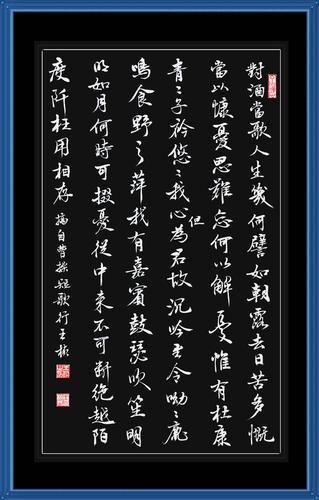 對酒當歌人生幾何譬如朝露去日苦多慨
當以慷憂思難忘何以解憂惟有杜康
青〻子衿悠〻我心但為君故沉吟至今呦〻鹿
鳴食野之苹我有嘉賓鼓瑟吹笙明
明如月何時可掇憂從中來不可斷絕越陌
度阡枉用相存 摘自曹操短歌行王